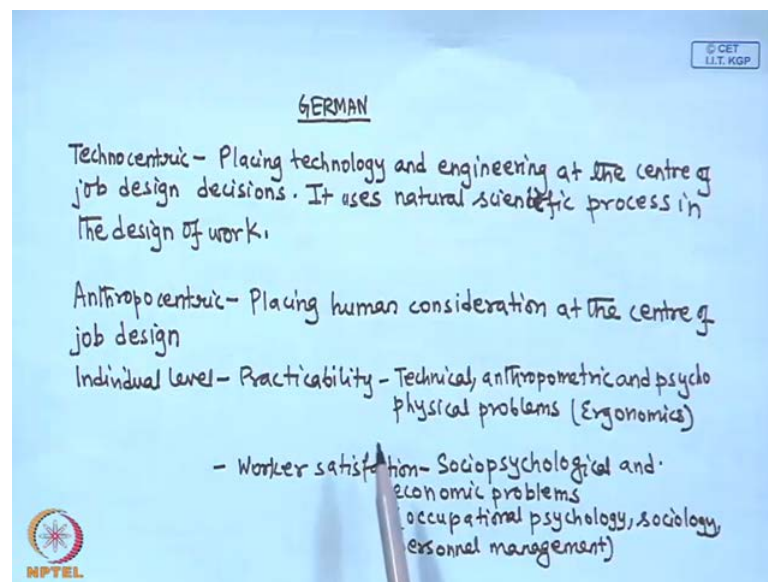 © CET
I.I.T. KGP
GERMAN
Technocentric - Placing technology and engineering at the centre of
job design decisions. It uses natural scientific process in
the design of work.
Anthropocentric - Placing human consideration at the centre of
job design
Individual level - Practicability - Technical, anthropometric and psycho
physical problems (Ergonomics)
- Worker satisfaction - Sociopsychological and
economic problems
occupational psychology, sociology,
personnel management)
NPTEL